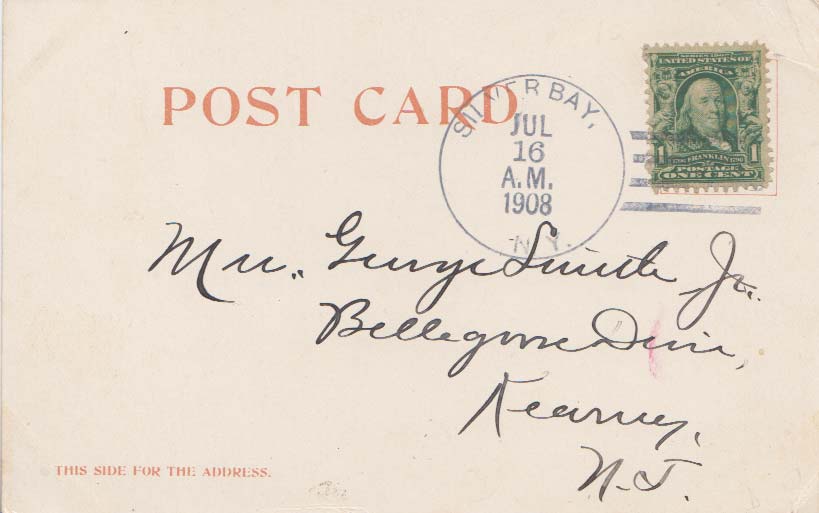 POST CARD
SILVER BAY,
JUL
16
A.M.
1908
N.Y.
SERIES 1902
UNITED STATES OF
AMERICA
1706 FRANKLIN 1790
1 POSTAGE 1
ONE CENT
Mrs. George Smith Jr.
Bellegrove Drive,
Kearney,
N.J.
THIS SIDE FOR THE ADDRESS.